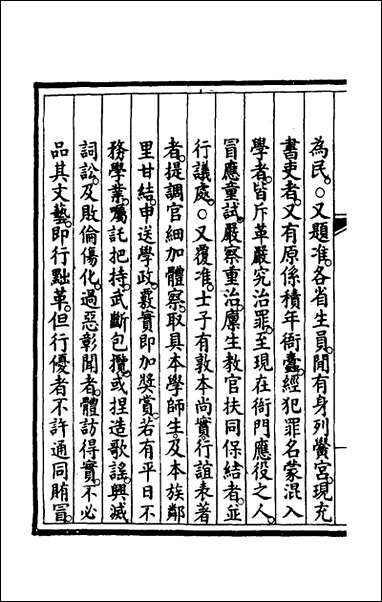 為民。○又題准。各省生員。聞有身列黌宮。現充
書吏者。又有原係積年衙蠹。經犯罪名。蒙混入
學者。皆斥革嚴究治罪。至現在衙門應役之人。
冒應童試。嚴察重治。廪生教官扶同保結者。並
行議處。○又覆准。士子有敦本尚實。行誼表著
者。提調官細加體察。取具本學師生。及本族鄰
里甘結。申送學政。覈實即加獎賞。若有平日不
務學業。囑託把持。武斷包攬。或揑造歌謠。興滅
詞訟。及敗倫傷化。過惡彰聞者。體訪得實。不必
品其文藝。即行黜革。但行優者不許通同賄冒。